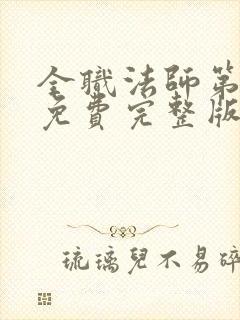 全職法師第
免費完整版
琉璃兒不易碎